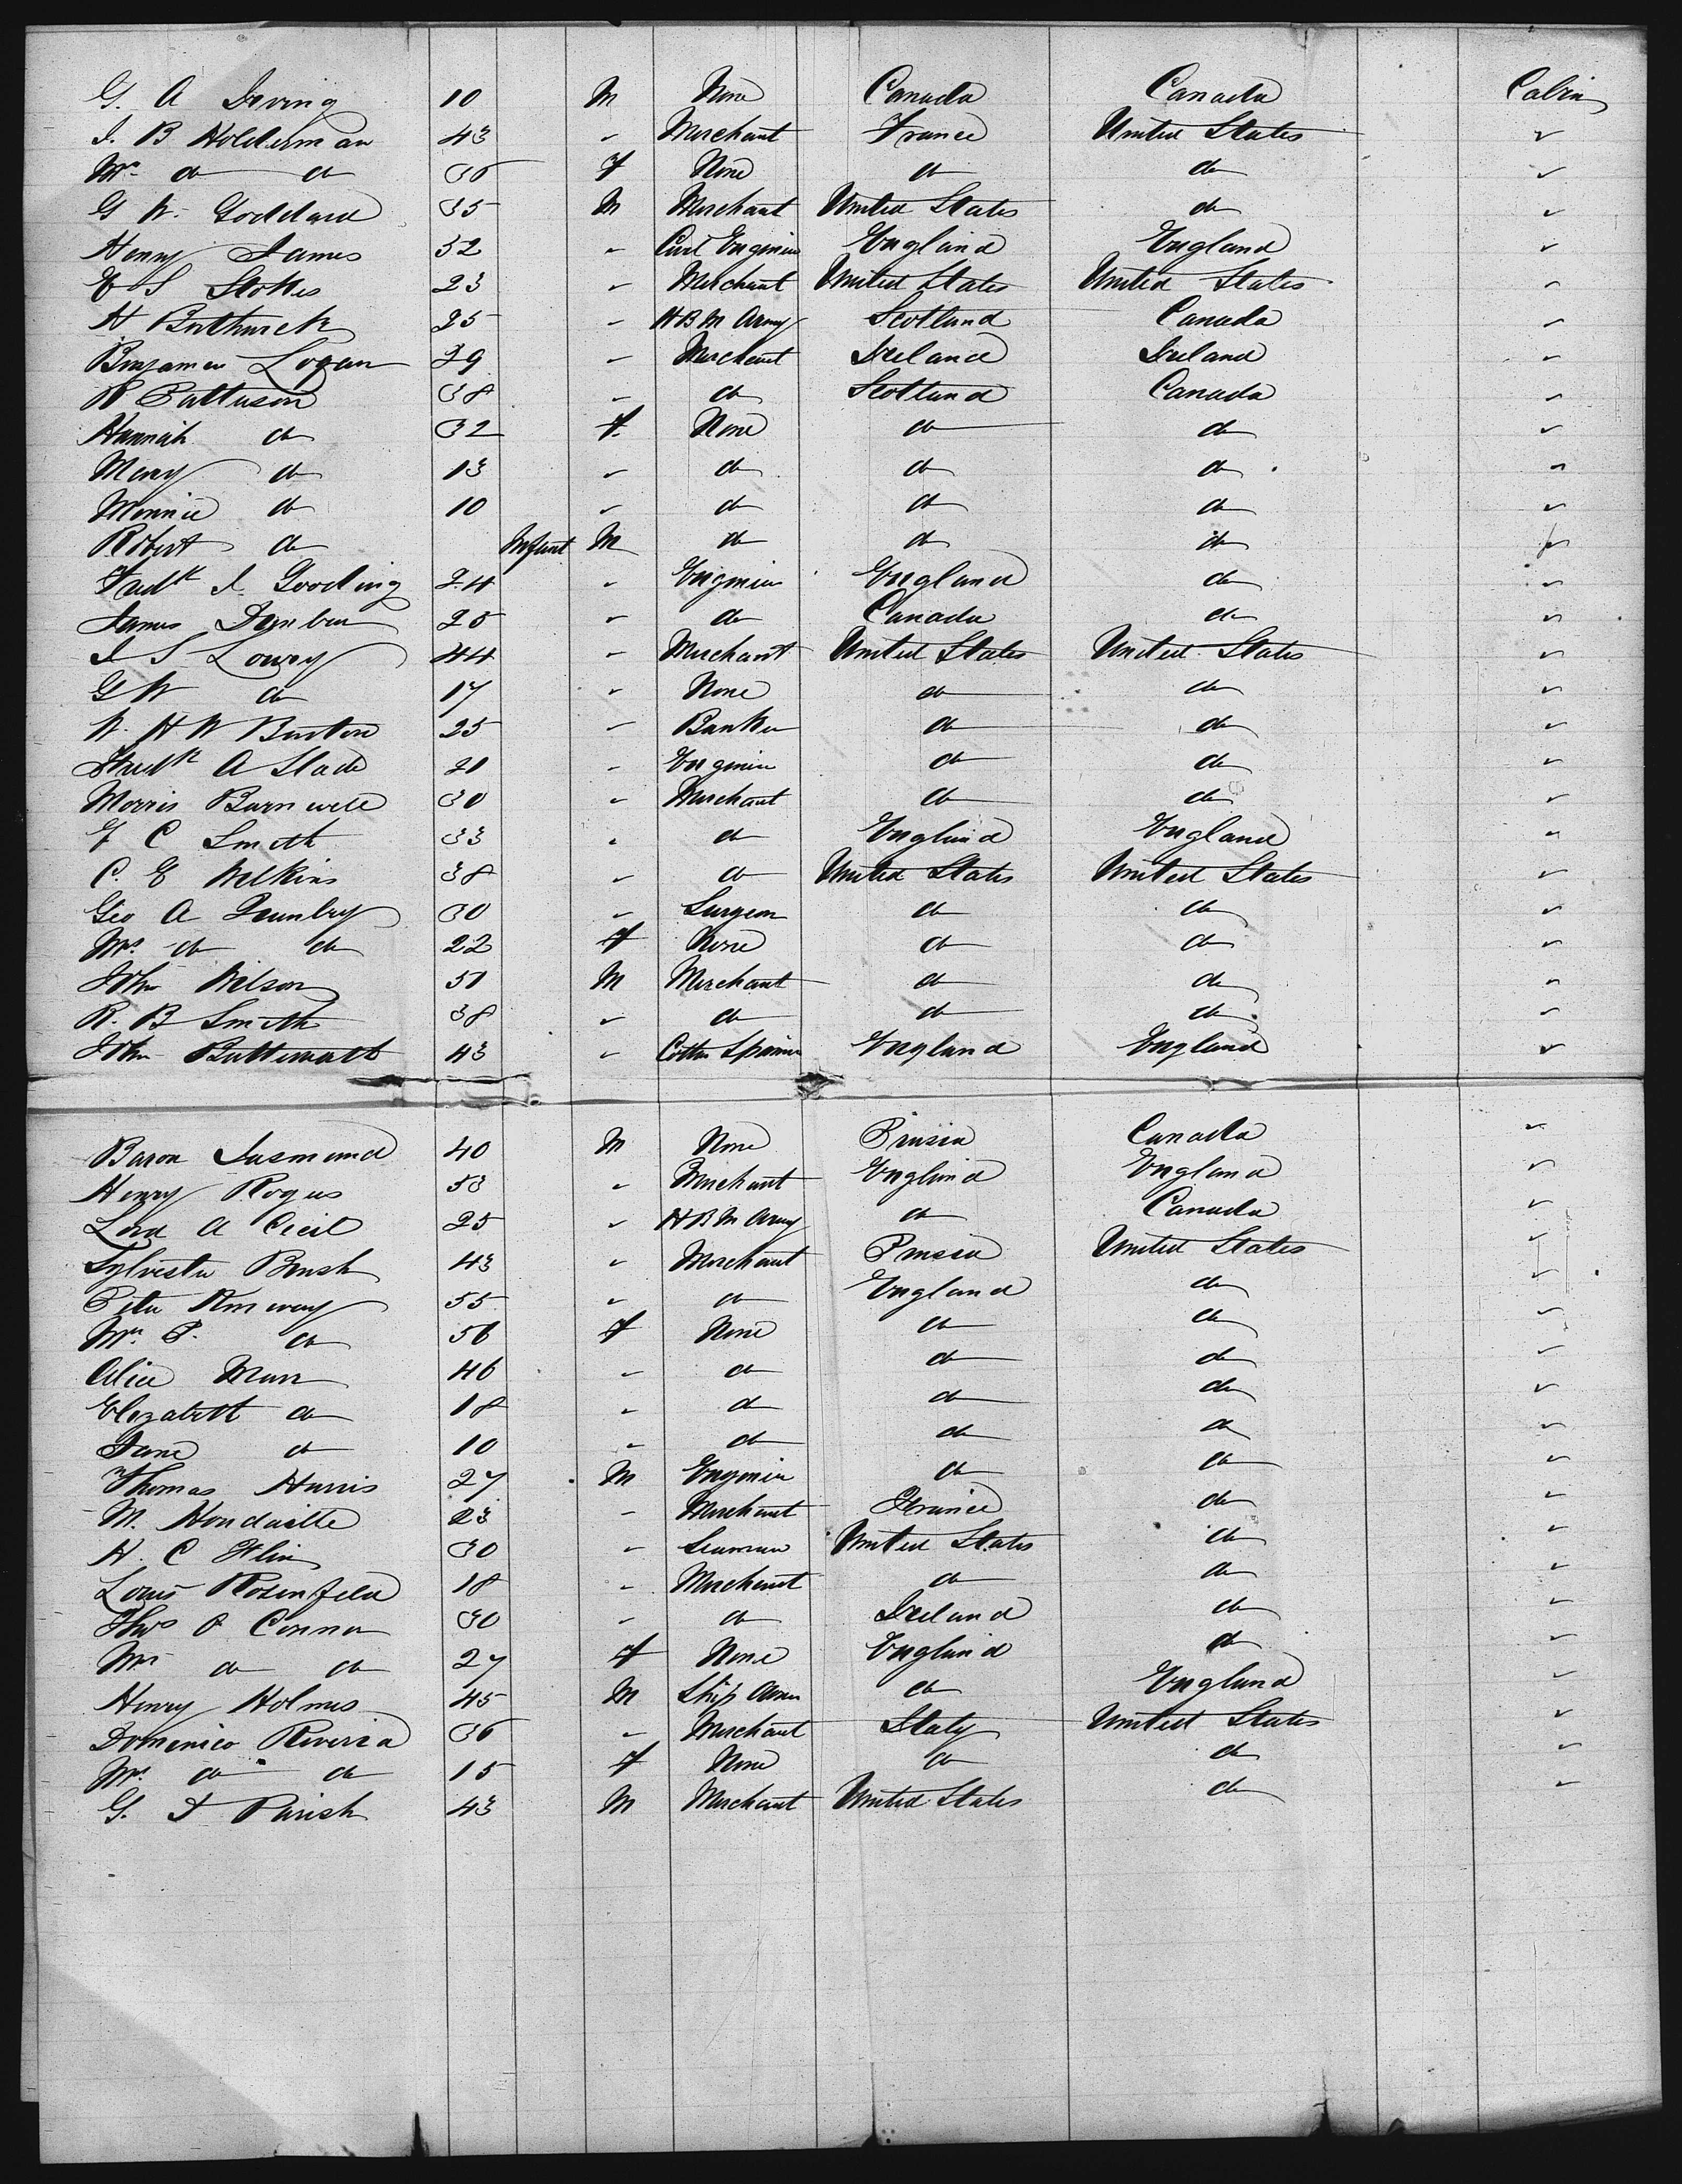 G. A Irving 10 M None Canada Canada Cabin
I. B Holderman 43 " Merchant France United States "
Mrs do do 36 F None do do "
G W. Goddard 35 M Merchant United States do "
Henry James 32 " Civil Enginier England England "
E S Stokes 23 " Merchant United States United States "
H Borthwick 25 " H B M Army Scotland Canada "
Benjamin Logan 39 " Merchant Ireland Ireland "
R Patterson 38 " do Scotland Canada "
Hannah do 32 F. None do do "
Mary do 13 " do do do "
Minnie do 10 " do do do "
Robert do Infant M do do do "
Fredk I. Gooding 24 " Enginier England do "
James Dunbar 25 " do Canada do "
I S Lowry 44 " Merchant United States United States "
G W do 17 " None do do "
W. H W Burton 25 " Banker do do "
Fredk A Slade 21 " Enginier do do "
Morris Barnwell 30 " Merchant do do "
F C Smith 33 " do England England "
C. E Wilkins 38 " do United States United States "
Geo A Quimby 30 " Surgeon do do "
Mrs. do do 22 F None do do "
John Wilson 51 M Merchant do do "
R. B Smith 38 " do do do "
John Butterworth 43 " Cotton Spinner England England "
Baron Jasmund 40 M None Prussia Canada "
Henry Rogers 53 " Merchant England England "
Lord A Cecil 25 " H B M Army do Canada "
Sylvester Brush 43 " Merchant Prussia United States "
Peter Kinsvey 55 " do England do "
Mrs. P. do 56 F None do do "
Alice Marr 46 " do do do "
Elizabeth do 18 " do do do "
Jane do 10 " do do do "
Thomas Harris 27 M Enginier do do "
M. Hondaille 23 " Merchant France do "
H. C Flin 30 " Seaman United States do "
Louis Rosenfeld 18 " Merchant do do "
Thos O Connor 30 " do Ireland do "
Mrs do do 27 F None England do "
Henry Holmes 45 M Ship Owner do England "
Dominico Riveria 36 " Merchant Italy United States "
Mrs. do do 15 F None do do "
G. I Parish 43 M Merchant United States do "